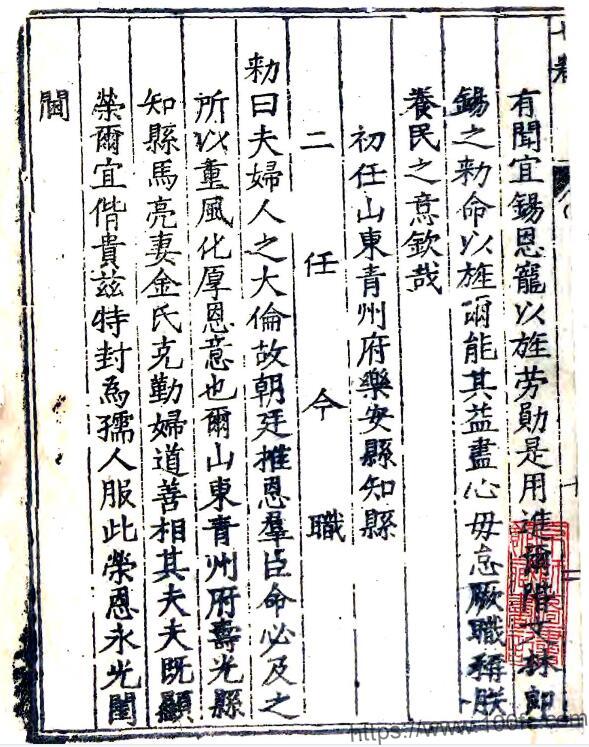 有聞宜錫恩寵以旌勞勛是用進爾階文林郎
錫之勑命以旌爾能其益盡心毋怠厥職稱朕
養民之意欽哉
初任山東青州府樂安縣知縣
二任今職
勑曰夫婦人之大倫故朝廷推恩羣臣命必及之
所以重風化厚恩意也爾山東青州府壽光縣
知縣馬亮妻金氏克勤婦道善相其夫夫既顯
榮爾宜偕貴茲特封為孺人服此榮恩永光閨
閫